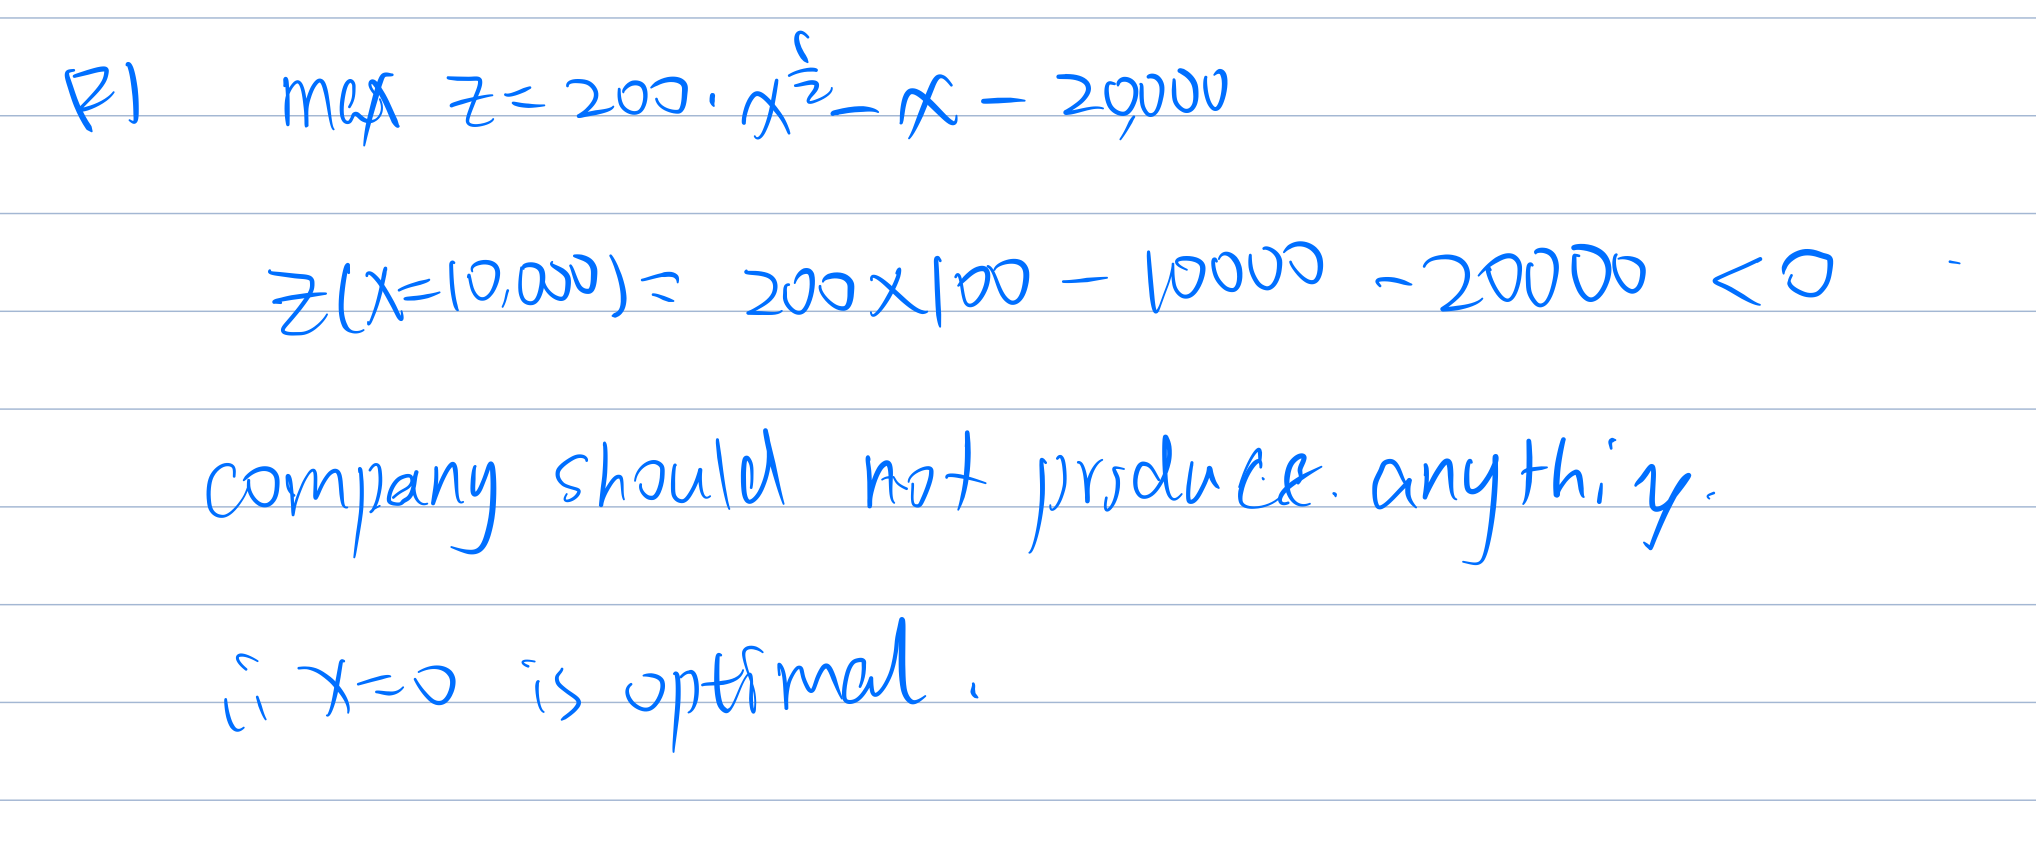 max z = 200 · x^{1/2} - x - 20,000
z(x=10,000) = 200×100 - 10000 - 20000 < 0
company should not produce. anything.
∴ x=0 is optimal.